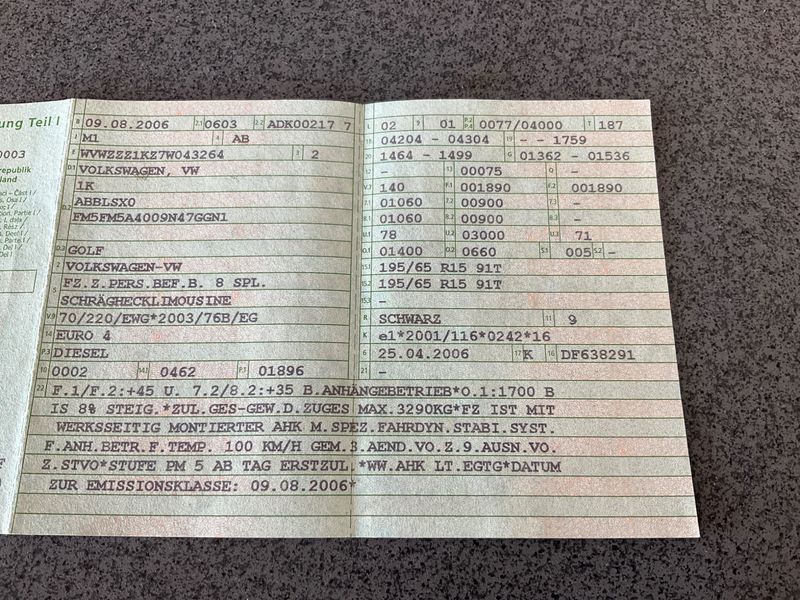 ung Teil I
0003
republik
land
B 09.08.2006 2.1 0603 2.2 ADK00217 7
J M1 4 AB
E WVWZZZ1KZ7W043264 3 2
D.1 VOLKSWAGEN, VW
1K
ABBLSX0
D.2 FM5FM5A4009N47GGN1
D.3 GOLF
2 VOLKSWAGEN-VW
5 FZ.Z.PERS.BEF.B. 8 SPL.
SCHRÄGHECKLIMOUSINE
V.9 70/220/EWG*2003/76B/EG
14 EURO 4
P.3 DIESEL
10 0002 14.1 0462 P.1 01896
L 02 9 01 P.2 P.4 0077/04000 T 187
18 04204 - 04304 19 - - 1759
20 1464 - 1499 G 01362 - 01536
12 - 13 00075 Q -
V.7 140 F.1 001890 F.2 001890
7.1 01060 7.2 00900 7.3 -
8.1 01060 8.2 00900 8.3 -
U.1 78 U.2 03000 U.3 71
O.1 01400 O.2 0660 S.1 005 S.2 -
15.1 195/65 R15 91T
15.2 195/65 R15 91T
15.3 -
R SCHWARZ 11 9
K e1*2001/116*0242*16
6 25.04.2006 17 K 16 DF638291
21 -
22 F.1/F.2:+45 U. 7.2/8.2:+35 B.ANHÄNGEBETRIEB*O.1:1700 B
IS 8% STEIG.*ZUL.GES-GEW.D.ZUGES MAX.3290KG*FZ IST MIT
WERKSSEITIG MONTIERTER AHK M.SPEZ.FAHRDYN.STABI.SYST.
F.ANH.BETR.F.TEMP. 100 KM/H GEM.3.AEND.VO.Z.9.AUSN.VO.
Z.STVO*STUFE PM 5 AB TAG ERSTZUL.*WW.AHK LT.EGTG*DATUM
ZUR EMISSIONSKLASSE: 09.08.2006*